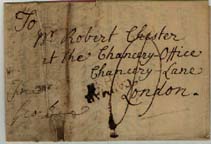 To
Mr. Robert Chester
at the Chancery-Office
Chancery-Lane
London.